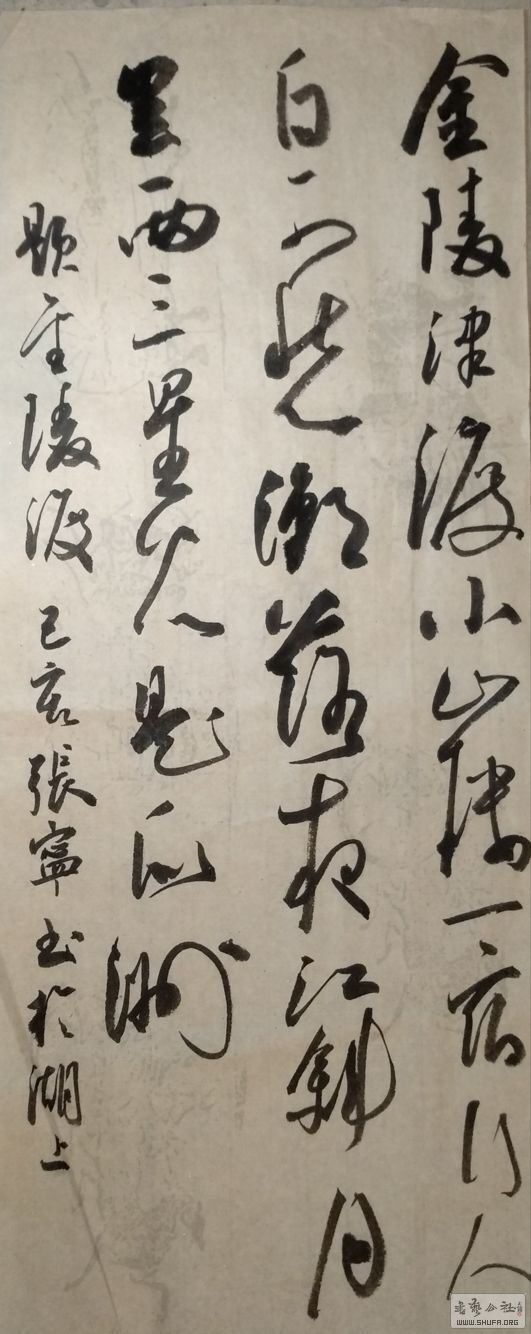 金陵津渡小山樓一宿行人
自可愁潮落夜江斜月
里兩三星火是瓜洲
題金陵渡 己亥張寧書於湖上
書藝公社
WWW.SHUFA.ORG